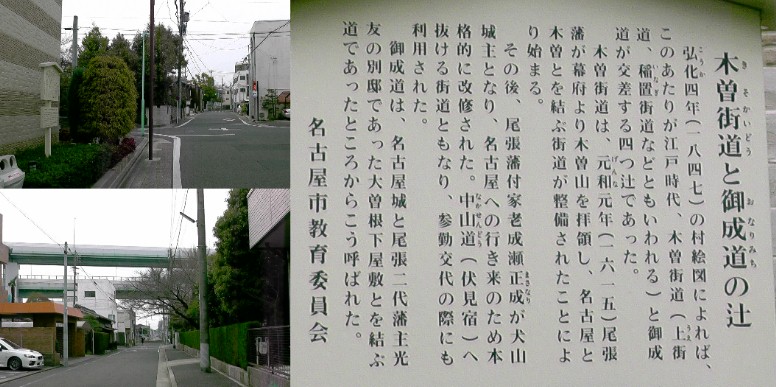 木曽街道と御成道の辻
きそかいどう おなりみち
弘化四年(一八四七)の付絵図によれば、
こうか
このあたりが江戸時代、木曽街道(上街
うえ
道、稲置街道などともいわれる)と御成
道が交差する四つ辻であった。
木曽街道は、元和元年(一六一五)尾張
げんな
藩が幕府より木曽山を拝領し、名古屋と
木曽とを結ぶ街道が整備されたことによ
り始まる。
その後、尾張藩付家老成瀬正成が犬山
まさなり
城主となり、名古屋への行き来のため本
格的に改修された。中山道(伏見宿)へ
なかせんどう
抜ける街道ともなり、参勤交代の際にも
利用された。
御成道は、名古屋城と尾張二代藩主光
友の別邸であった大曽根下屋敷とを結ぶ
道であったところからこう呼ばれた。
名古屋市教育委員会